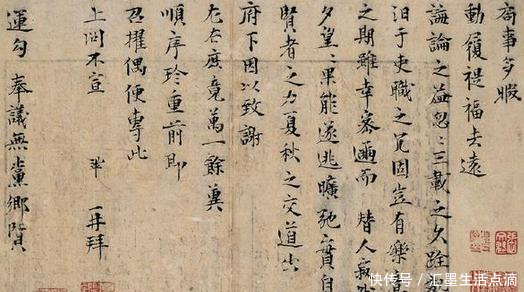 局事多暇
動履禔福去遠
誨論之益忽忽三載之久跧
汩于吏職之冗固豈有樂
之期雖幸密邇而替人寂
夕望望果能遂逃曠弛實自
賢者之力夏秋之交道出
府下因以致謝
左右庶竟萬一餘冀
順序珍重前即
召擢偶便專此
上問不宣 鞏 再拜
運勾奉議無黨鄉賢
快传号 / 汇墨生活点滴